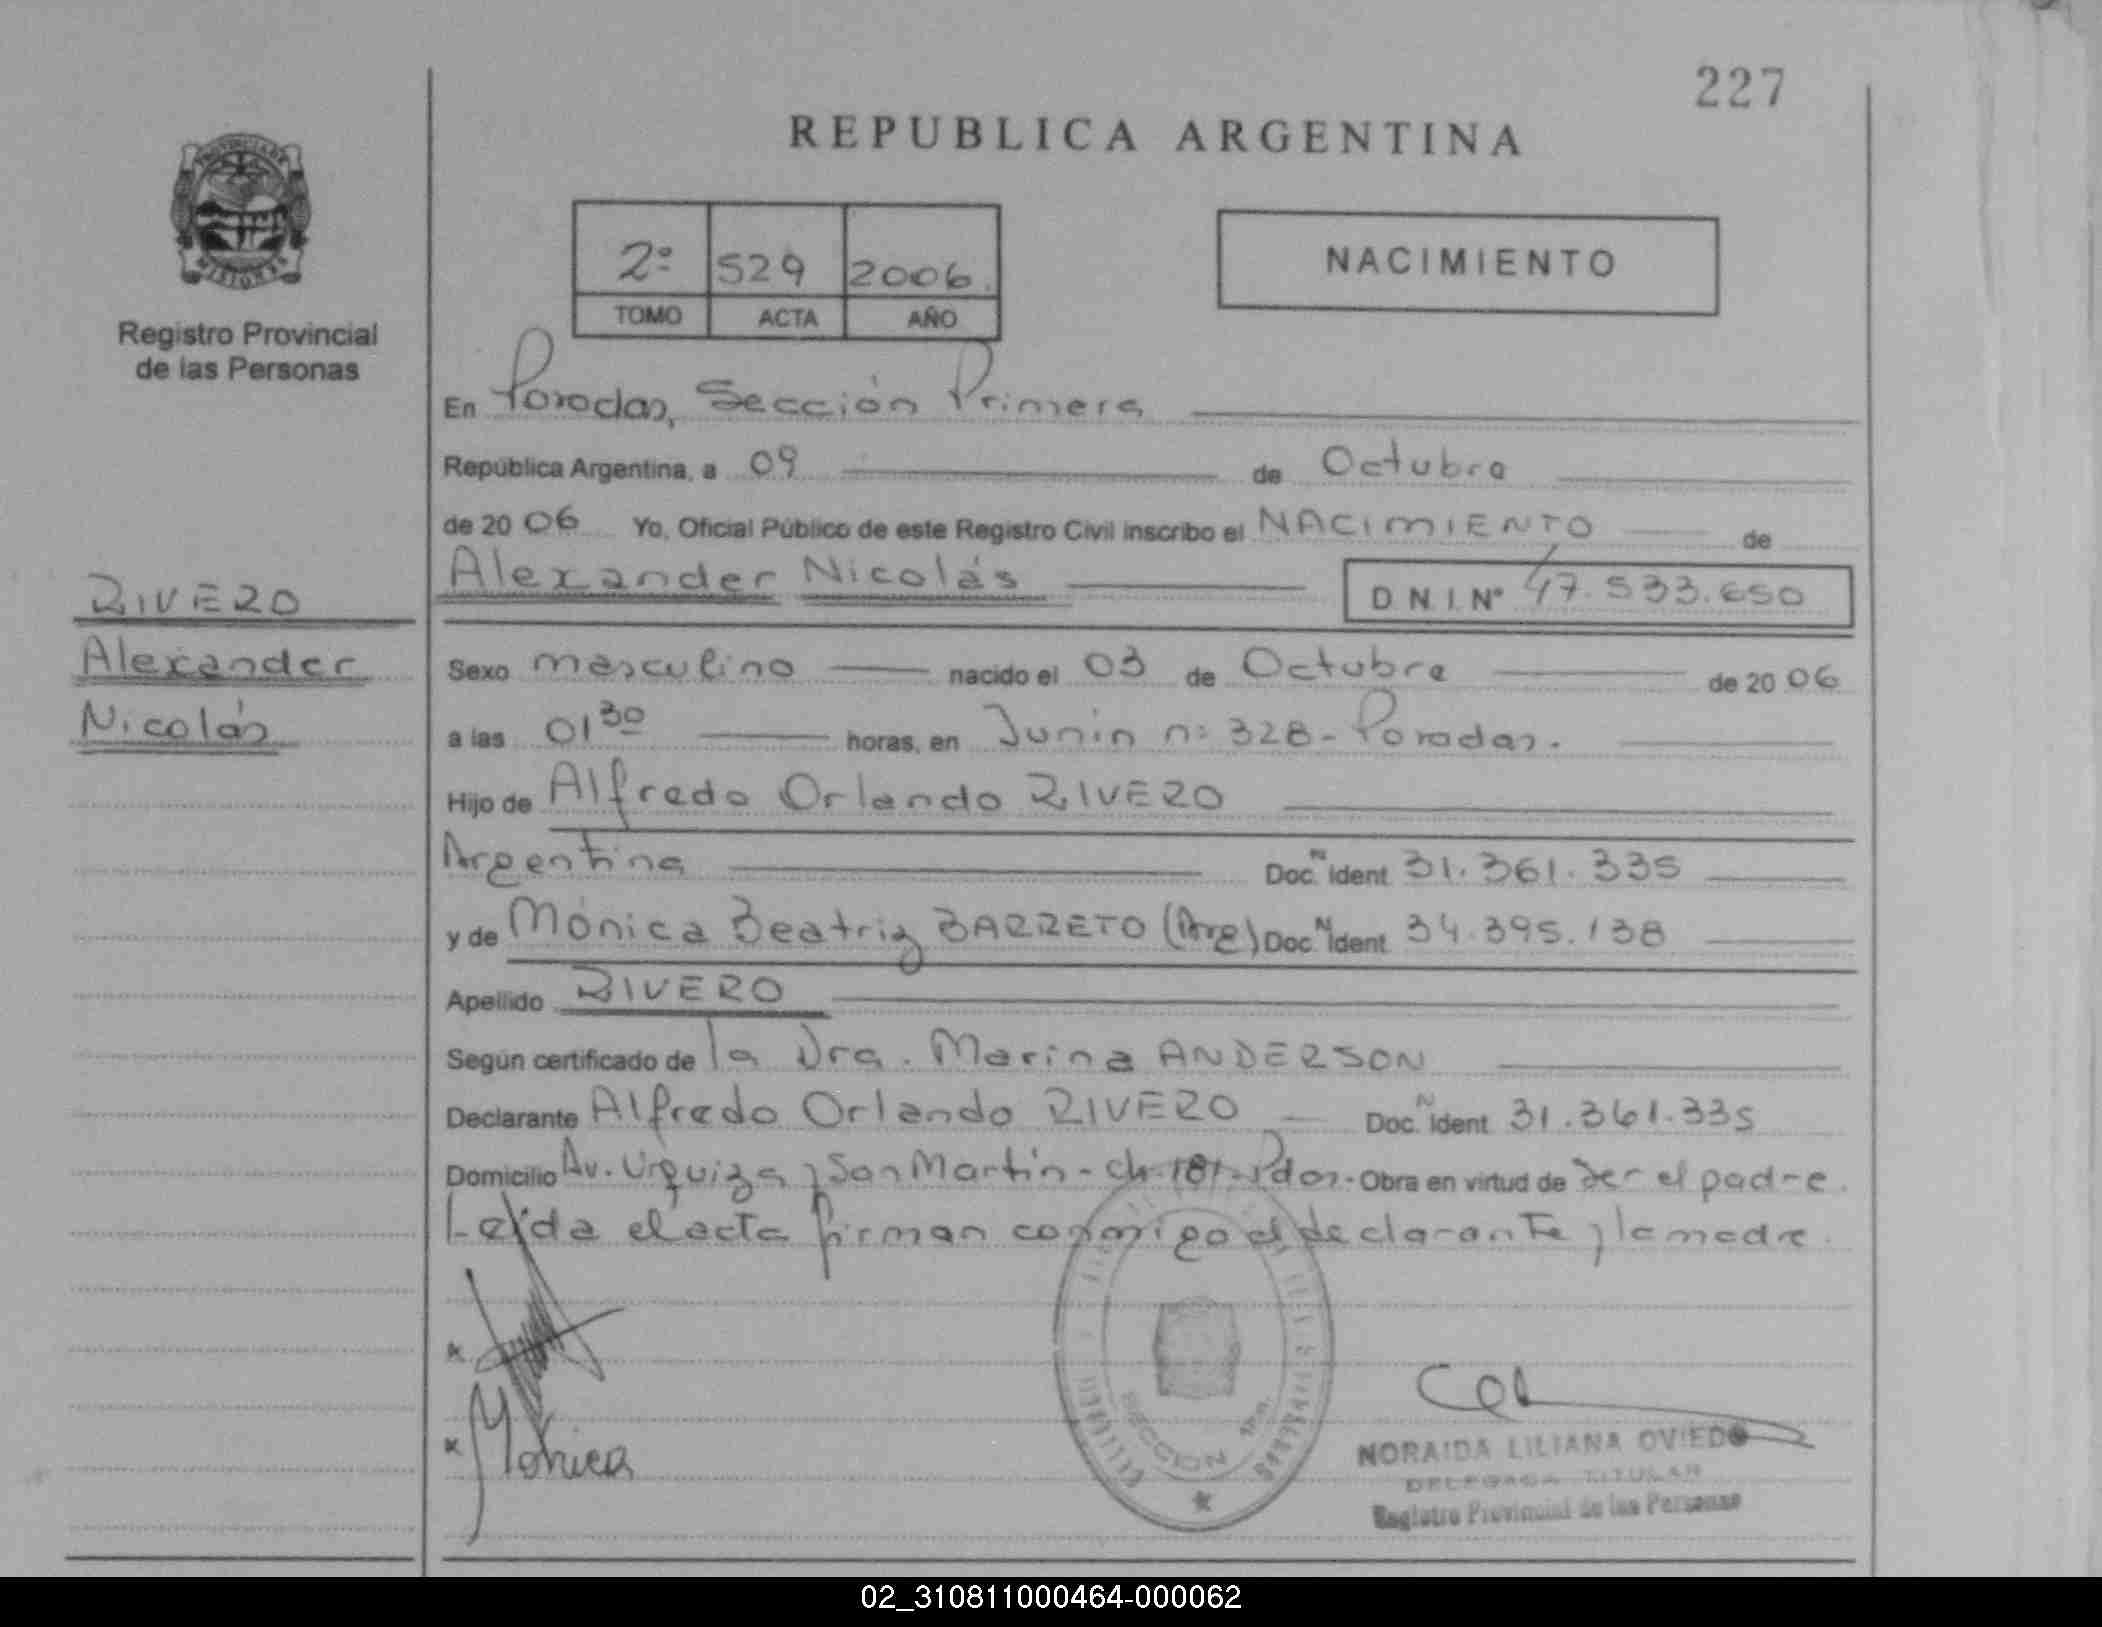 227
REPUBLICA ARGENTINA
PROVINCIA DE
MISIONES
Registro Provincial
de las Personas
2º 529 2006.
TOMO ACTA AÑO
NACIMIENTO
En Posadas, Sección Primera
República Argentina, a 09 de Octubre
de 20 06 Yo, Oficial Público de este Registro Civil inscribo el NACIMIENTO de
Alexander Nicolás D.N.I. Nº 47.533.650
RIVERO
Alexander
Nicolás
Sexo masculino nacido el 03 de Octubre de 20 06
a las 01 30 horas, en Junín nº 328 - Posadas.
Hijo de Alfredo Orlando RIVERO
Argentina Doc. N Ident 31.361.335
y de Mónica Beatriz BARRETO (Arg) Doc. N Ident 34.395.138
Apellido RIVERO
Según certificado de la Dra. Marina ANDERSON
Declarante Alfredo Orlando RIVERO Doc. N Ident 31.361.335
Domicilio Av. Urquiza y San Martín - ch. 181 - Pdas. - Obra en virtud de ser el padre.
Leída el acta firman conmigo el declarante y la madre.
x
x Mónica
SECCION 1ra.
NORAIDA LILIANA OVIEDO
DELEGADA TITULAR
Registro Provincial de las Personas
02_310811000464-000062